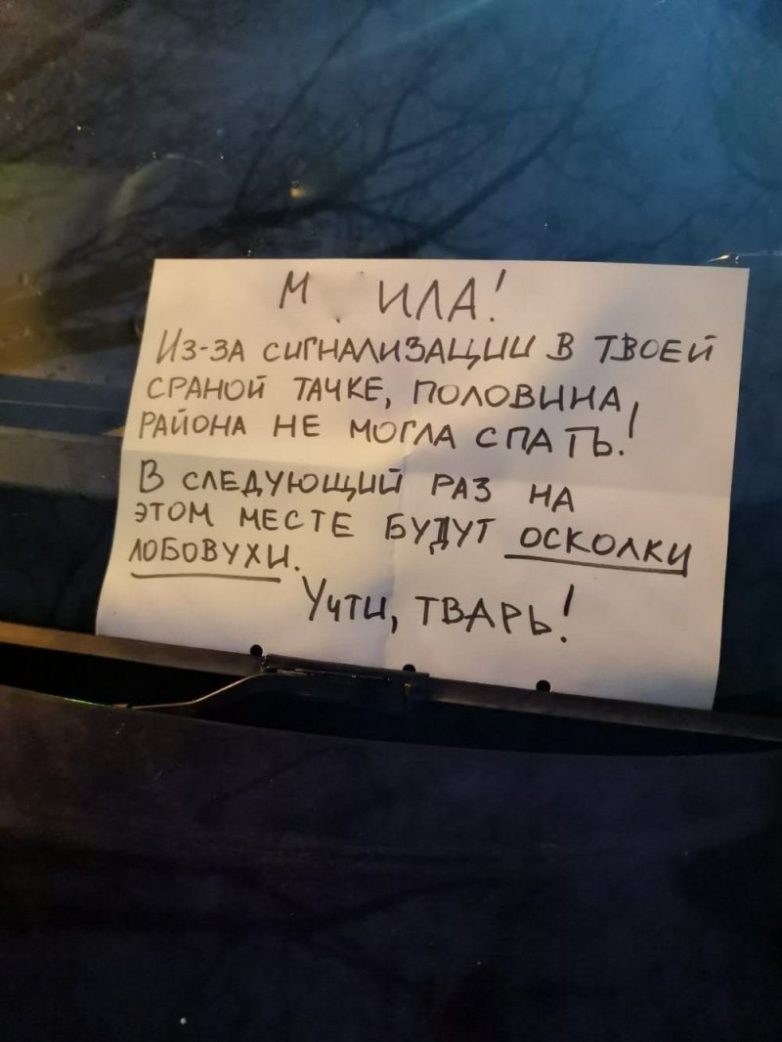 ИЗ-ЗА СИГНАЛИЗАЦИИ В ТВОЕЙ
СРАНОЙ ТАЧКЕ, ПОЛОВИНА
РАЙОНА НЕ МОГЛА СПАТЬ!
В СЛЕДУЮЩИЙ РАЗ НА
ЭТОМ МЕСТЕ БУДУТ ОСКОЛКИ
ЛОБОВУХИ.
УЧТИ, ТВАРЬ!